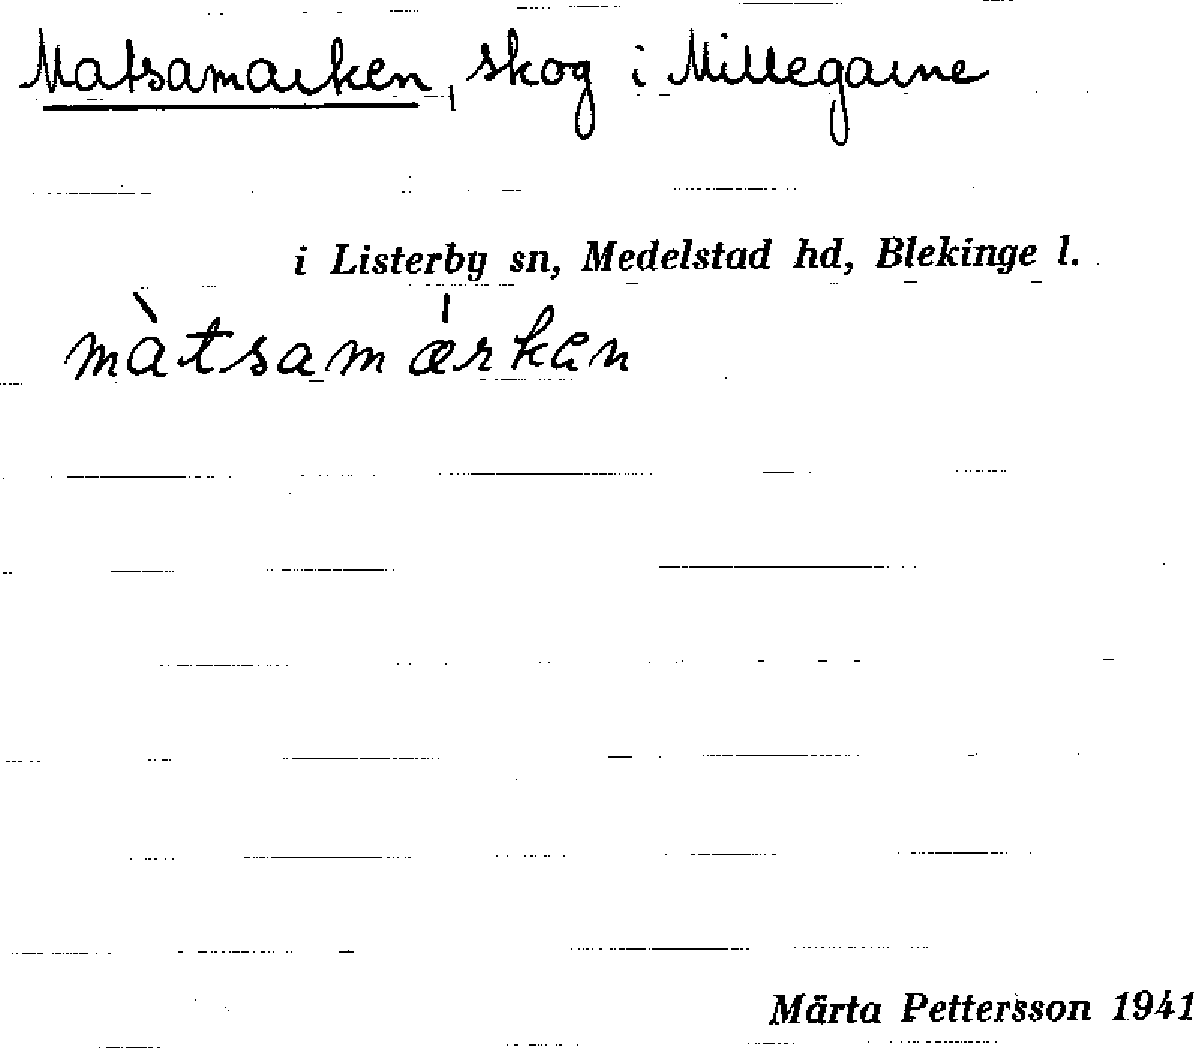 Matsamarken, skog i Millegarne
i Listerby sn, Medelstad hd, Blekinge l.
màtsamǽrkən
Märta Pettersson 1941